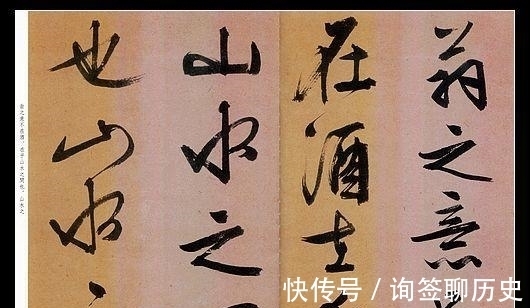 翁之意
在酒在
山水之
也山水
翁之意不在酒，在乎山水之間也。山水之
快传号 / 询签聊历史